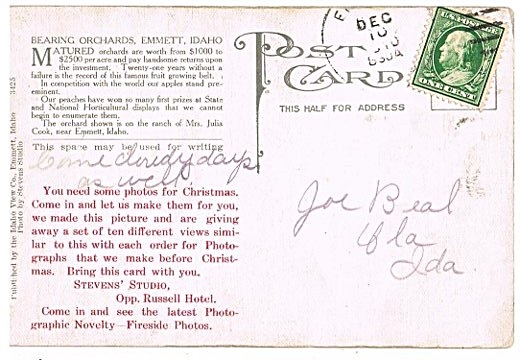 BEARING ORCHARDS, EMMETT, IDAHO
MATURED orchards are worth from $1000 to
$2500 per acre and pay handsome returns upon
the investment. Twenty-one years without a
failure is the record of this famous fruit growing belt.
In competition with the world our apples stand pre-
eminent.
Our peaches have won so many first prizes at State
and National Horticultural displays that we cannot
begin to enumerate them.
The orchard shown is on the ranch of Mrs. Julia
Cook, near Emmett, Idaho.
This space may be used for writing
Come cloudy days
as well
You need some photos for Christmas.
Come in and let us make them for you,
we made this picture and are giving
away a set of ten different views simi-
lar to this with each order for Photo-
graphs that we make before Christ-
mas. Bring this card with you.
STEVENS' STUDIO,
Opp. Russell Hotel.
Come in and see the latest Photo-
graphic Novelty—Fireside Photos.
Published by the Idaho View Co., Emmett, Idaho 3425
Photo by Stevens Studio
POST
CARD
THIS HALF FOR ADDRESS
DEC
10
Joe Beal
Ola
Ida.